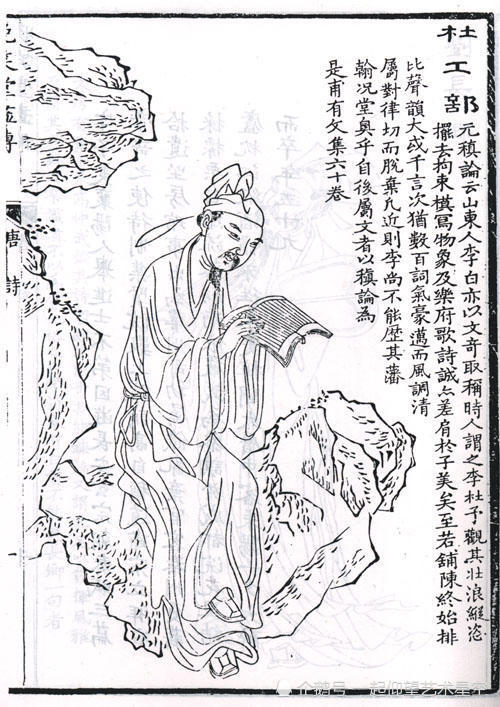 杜工部
元稹論云山東人李白亦以文奇取稱時人謂之李杜予觀其壯浪縱恣
擺去拘束模寫物象及樂府歌詩誠亦差肩於子美矣至若舖陳終始排
比聲韻大或千言次猶數百詞氣豪邁而風調清
屬對律切而脫棄凡近則李尚不能歷其藩
翰況堂奧乎自後屬文者以稹論為
是甫有文集六十卷
笑堂畫傳
唐 詩
一
企鹅号 一起仰望艺术星空